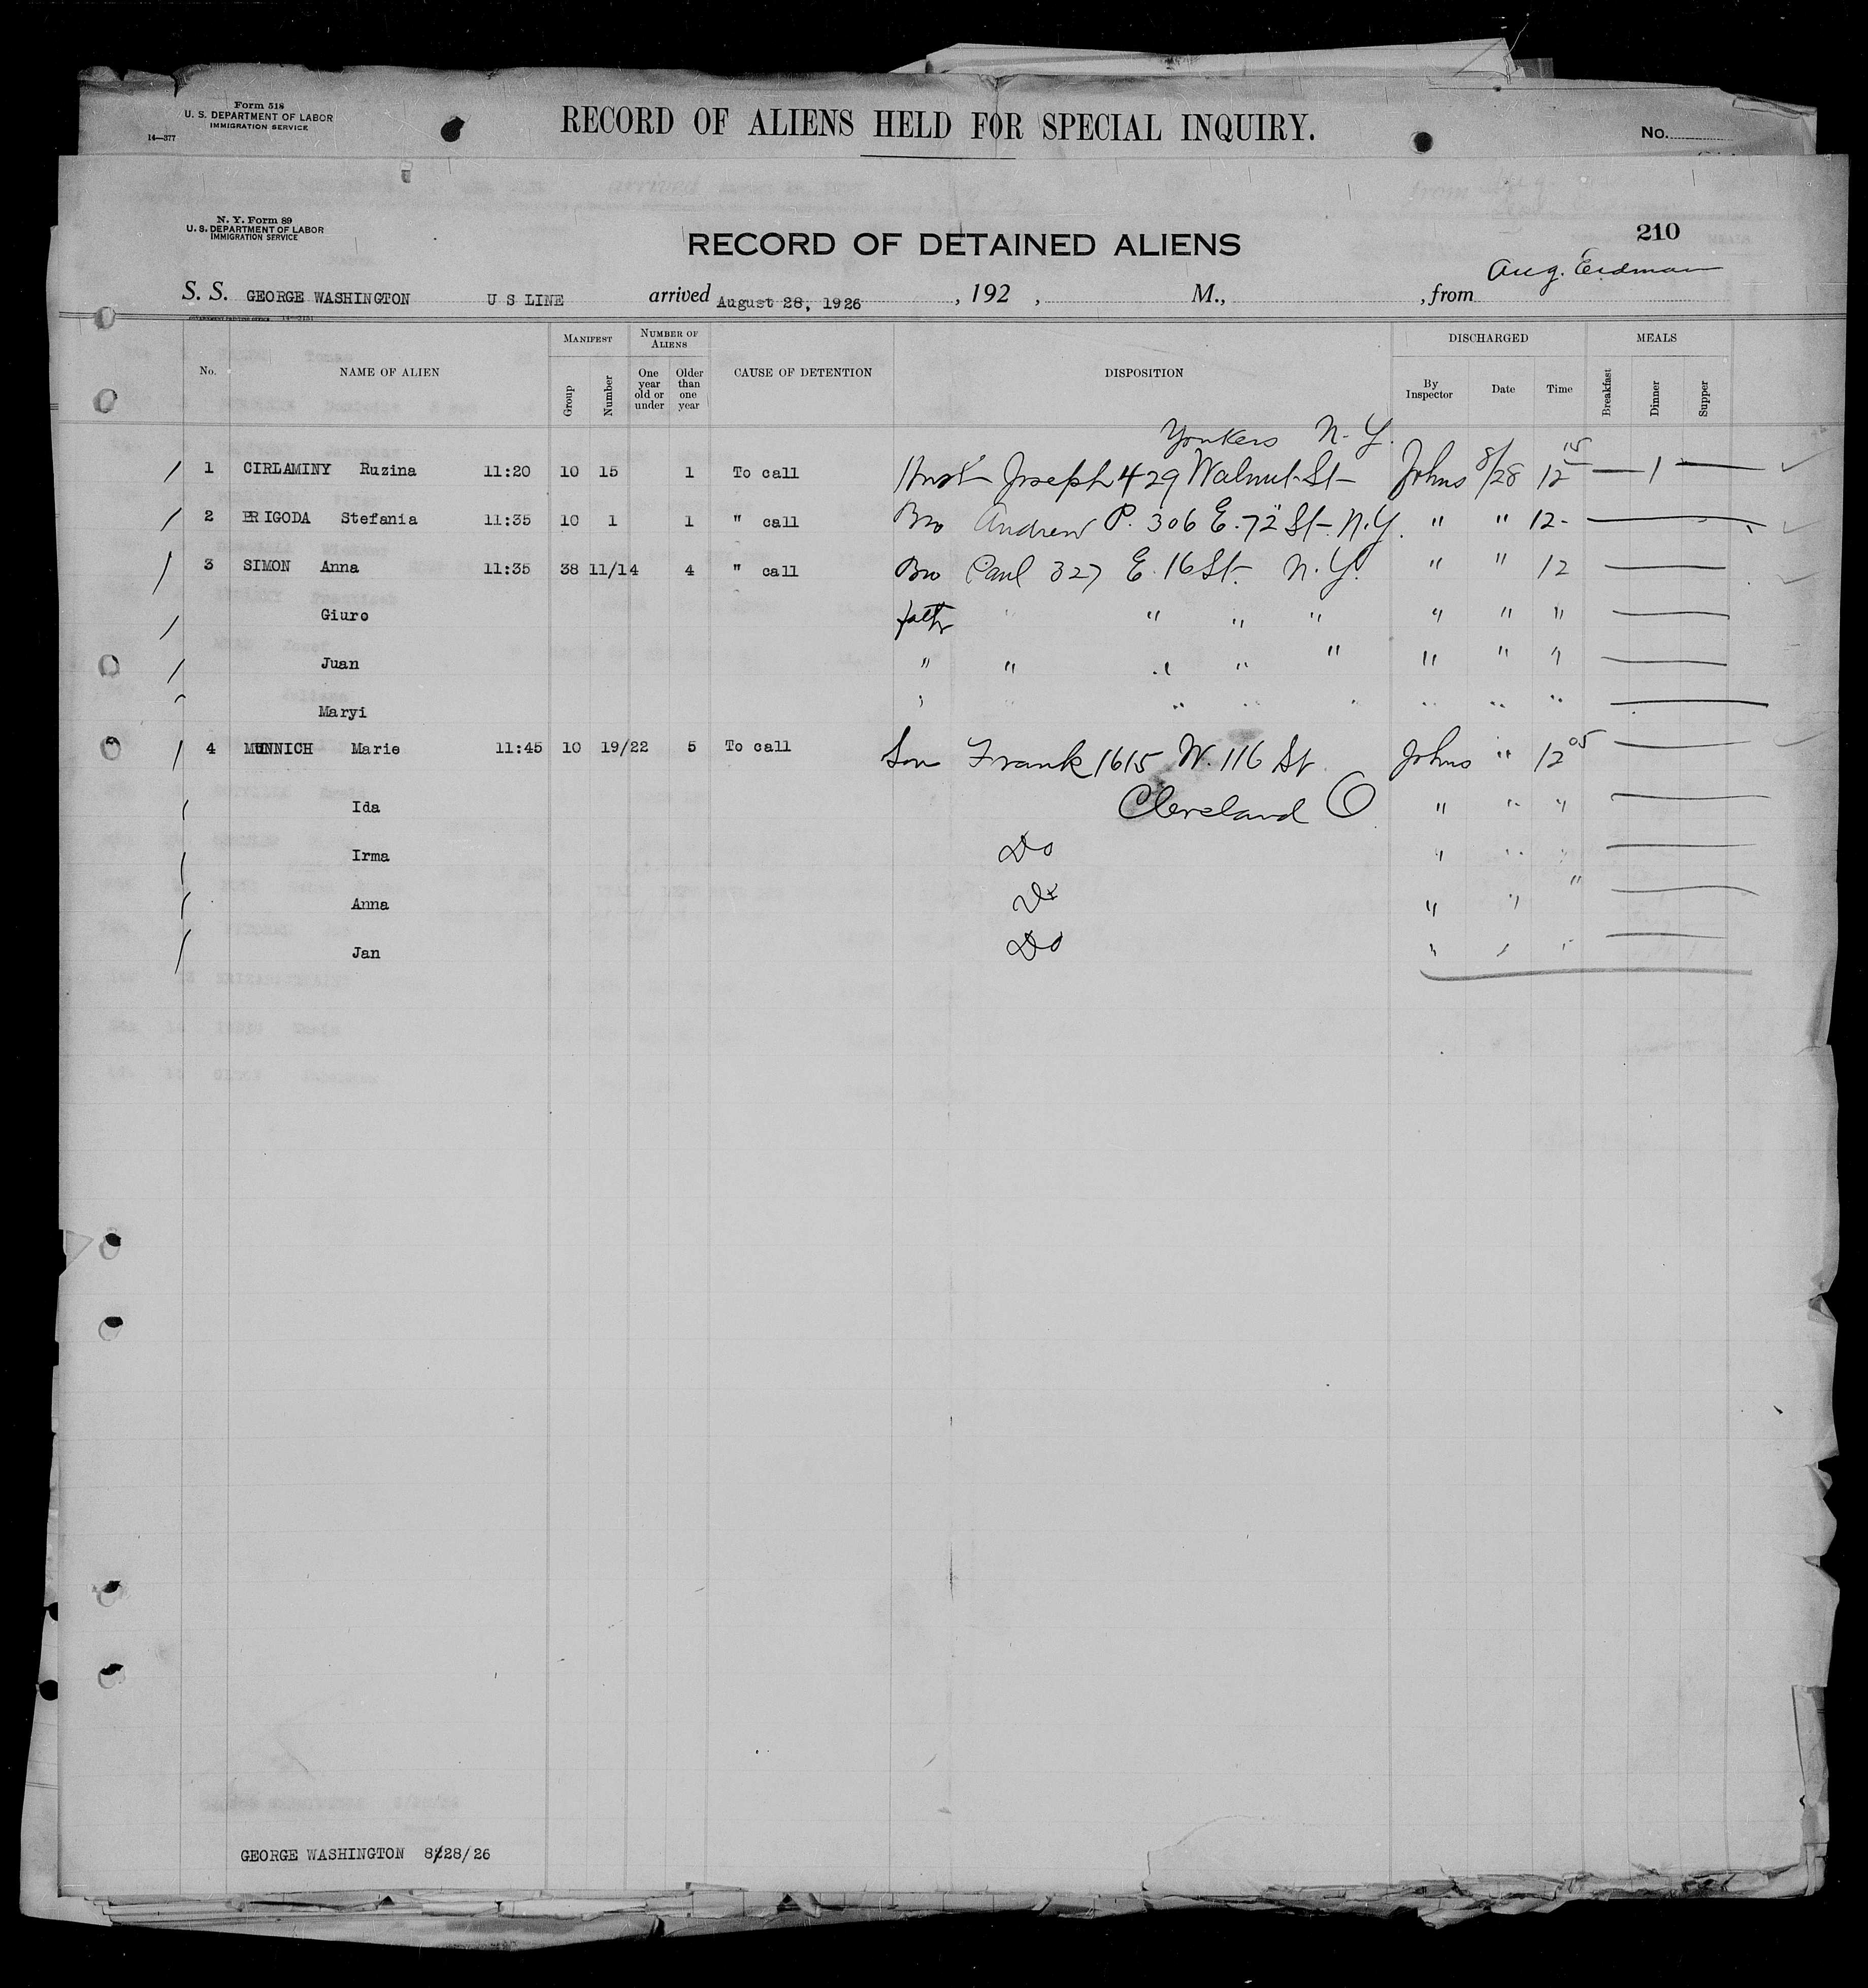 Form 518
U. S. DEPARTMENT OF LABOR
IMMIGRATION SERVICE
14—377
RECORD OF ALIENS HELD FOR SPECIAL INQUIRY.
No.
N. Y. Form 89
U. S. DEPARTMENT OF LABOR
IMMIGRATION SERVICE
RECORD OF DETAINED ALIENS
210
Aug. Erdman
S. S. GEORGE WASHINGTON U S LINE arrived August 28, 1926, 192 , M., , from
No. NAME OF ALIEN MANIFEST Group Number NUMBER OF ALIENS One year old or under Older than one year CAUSE OF DETENTION DISPOSITION DISCHARGED By Inspector Date Time MEALS Breakfast Dinner Supper
Yonkers N.Y.
/ 1 CIRLAMINY Ruzina 11:20 10 15 1 To call Husb Joseph 429 Walnut St — Johns 8/28 12 15 — 1 —
/ 2 PRIGODA Stefania 11:35 10 1 1 " call Bro Andrew P. 306 E. 72 St. N.Y. " " 12 —
/ 3 SIMON Anna 11:35 38 11/14 4 " call Bro Paul 327 E. 16 St. N.Y. " " 12 —
/ Giuro fath " " " " " " " —
/ Juan " " " " " " " " —
Maryi " " " " " " " " —
/ 4 MUNNICH Marie 11:45 10 19/22 5 To call Son Frank 1615 W. 116 St Johns " 12 05 —
/ Ida Cleveland O " " " —
/ Irma Do " " " —
/ Anna Do " " " —
/ Jan Do " " " —
GEORGE WASHINGTON 8/28/26